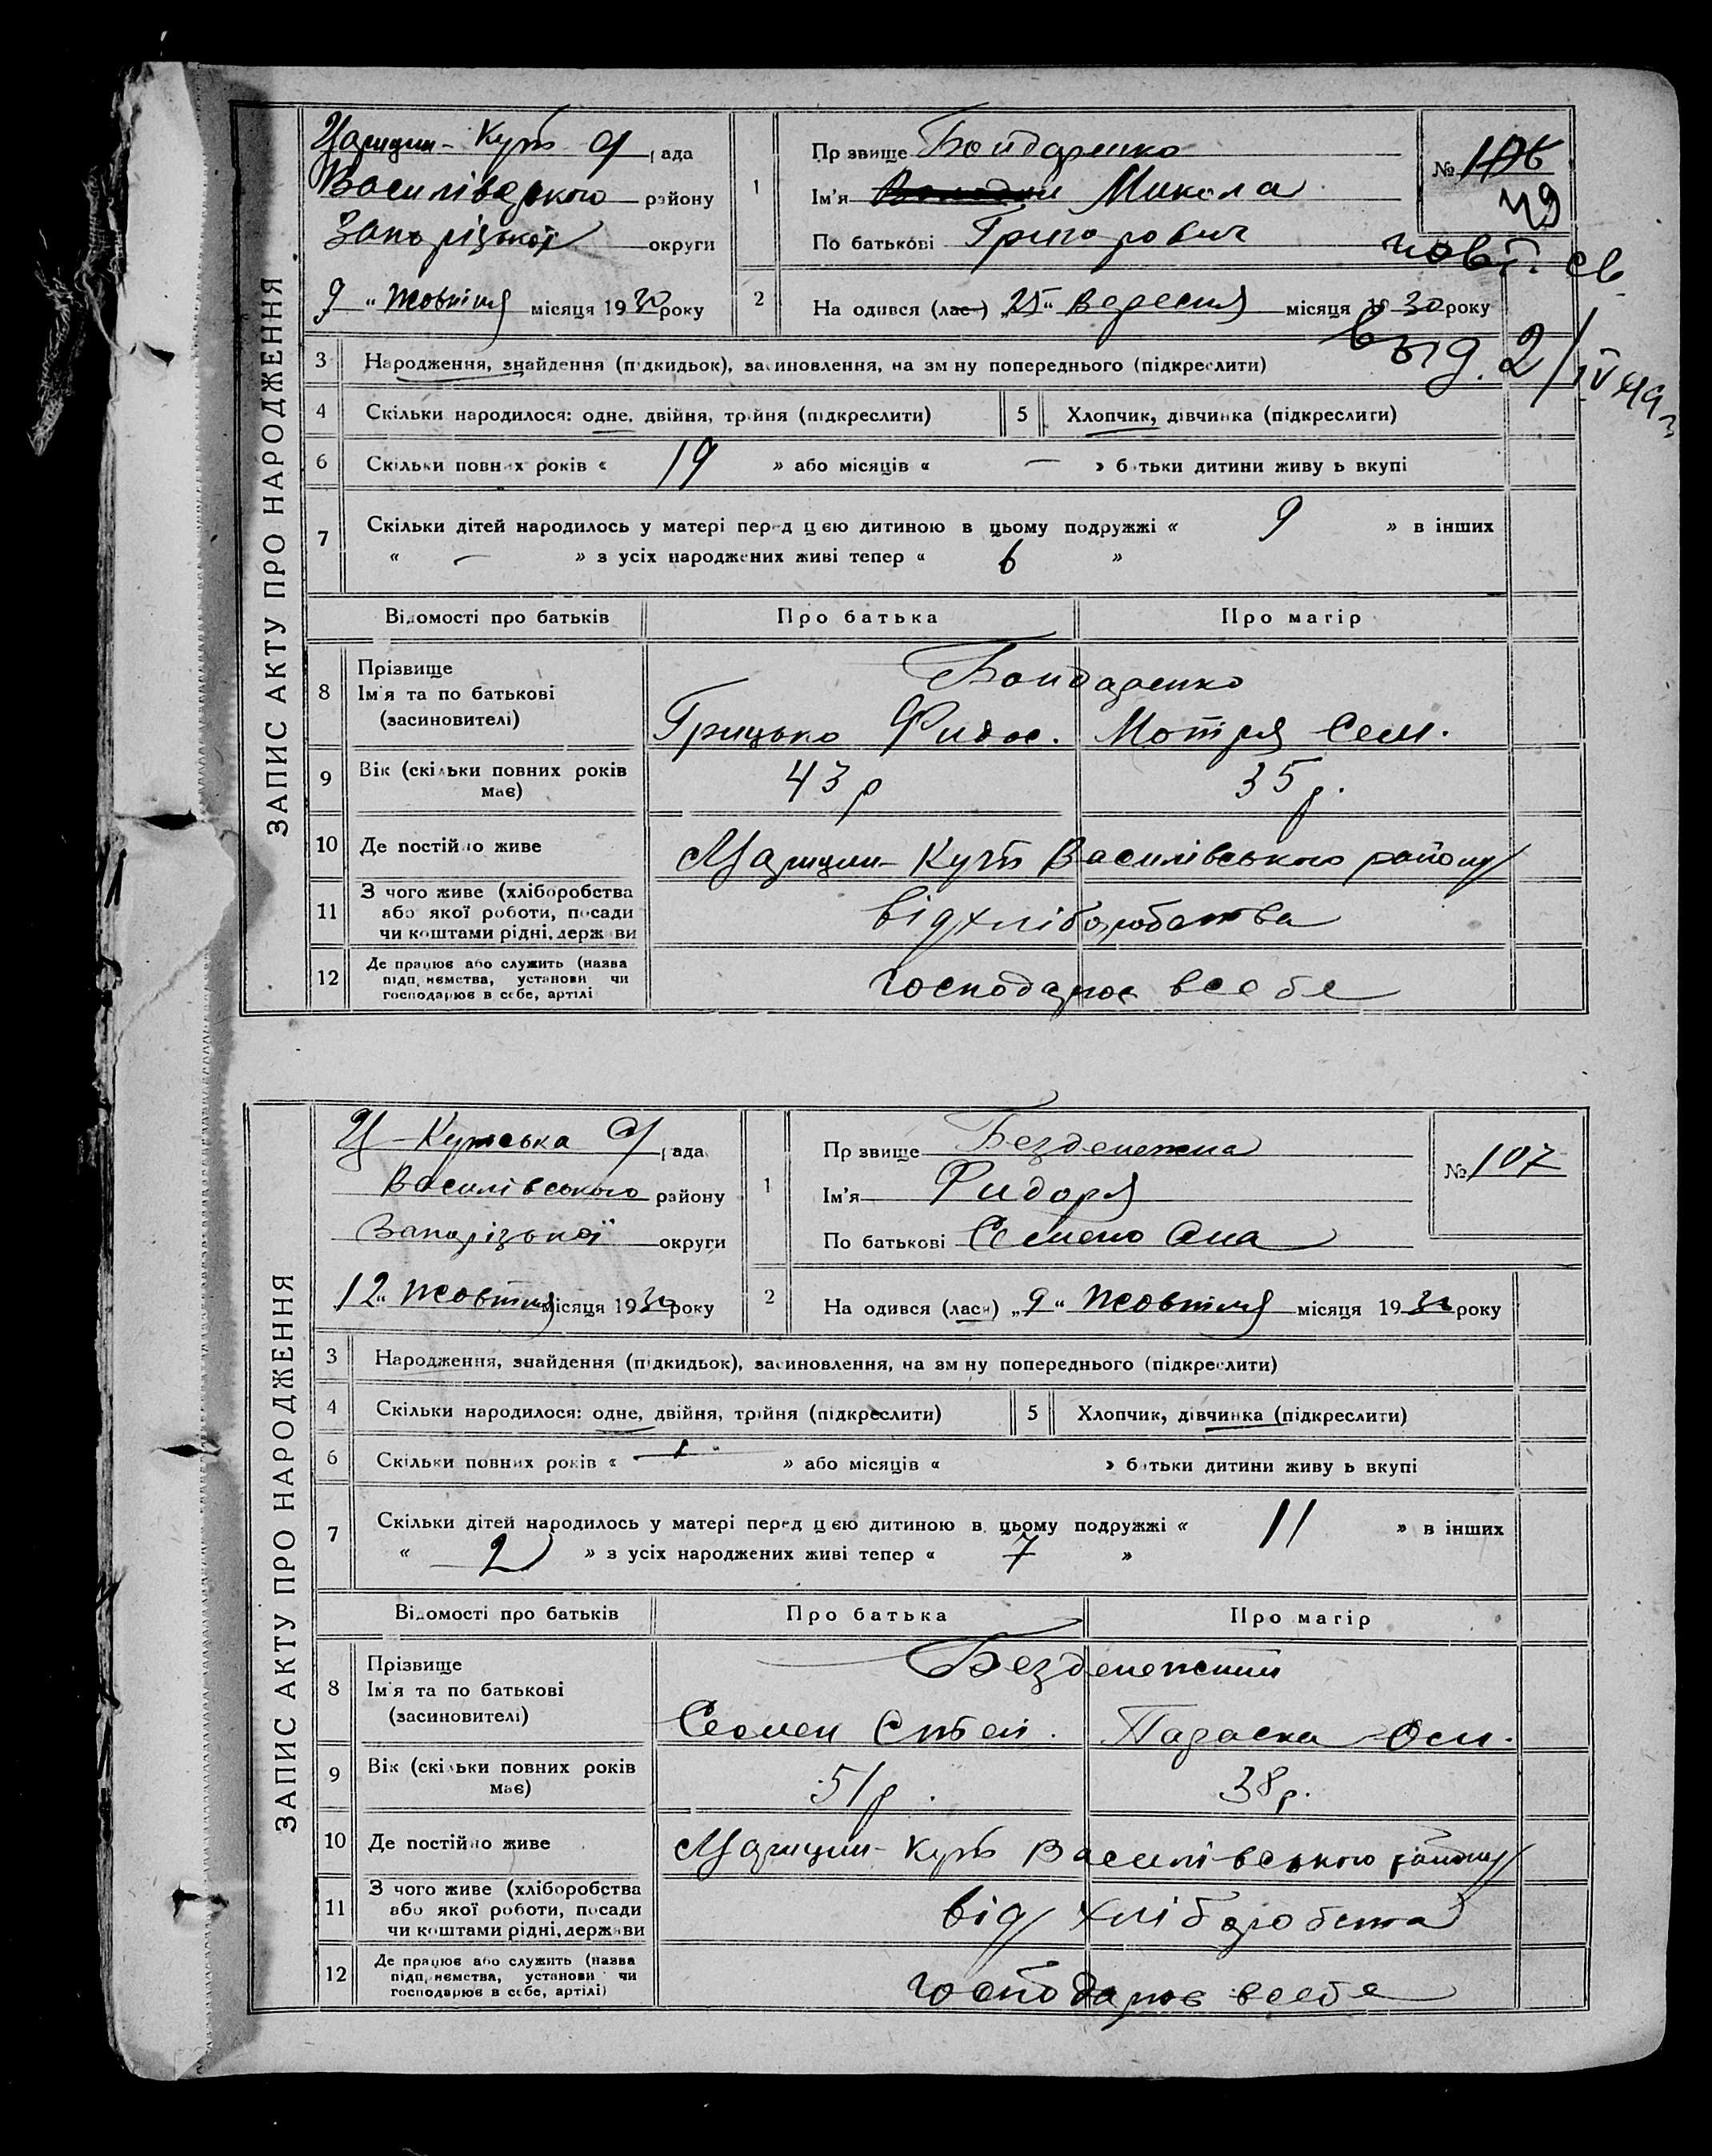 ЗАПИС АКТУ ПРО НАРОДЖЕННЯ
Царицин-Кутъ с/рада
Василівського району
Запорізької округи
9 " жовтня місяця 1930 року
1 Прізвище Бондаренко
Ім'я Микола
По батькові Григорович
№ 106
49
повт. св
выд. 2/IV 49
2 На одився (лас-) „25" Вересня місяця 1930 року
3 Народження, знайдення (підкидьок), засиновлення, на зм ну попереднього (підкреслити)
4 Скільки народилося: одне, двійня, трійня (підкреслити)
5 Хлопчик, дівчинка (підкреслити)
6 Скільки повних років « 19 » або місяців « — » батьки дитини живу ь вкупі
7 Скільки дітей народилось у матері перед цією дитиною в цьому подружжі « 9 » в інших
« — » з усіх народжених живі тепер « 6 »
Відомості про батьків Про батька Про матір
8 Прізвище
Ім'я та по батькові
(засиновителі)
Бондаренко
Грицько Фидос. Мотря Сем.
9 Вік (скільки повних років має) 43 р 35 р.
10 Де постійно живе Царицин-Кутъ Василівського району
11 З чого живе (хліборобства
або якої роботи, посади
чи коштами рідні, держави
від хліборобства
12 Де працює або служить (назва
підприємства, установи чи
господарює в себе, артілі
господарює в себе
ЗАПИС АКТУ ПРО НАРОДЖЕННЯ
Ц-Кутська с/рада
Василівського району
Запорізької округи
12 " жовтня місяця 1930 року
1 Прізвище Безденежна
Ім'я Фидоря
По батькові Семеновна
№ 107
2 На одився (лася) „9" жовтня місяця 1930 року
3 Народження, знайдення (підкидьок), засиновлення, на зм ну попереднього (підкреслити)
4 Скільки народилося: одне, двійня, трійня (підкреслити)
5 Хлопчик, дівчинка (підкреслити)
6 Скільки повних років « » або місяців « » батьки дитини живу ь вкупі
7 Скільки дітей народилось у матері перед цією дитиною в цьому подружжі « 11 » в інших
« 2 » з усіх народжених живі тепер « 7 »
Відомості про батьків Про батька Про матір
8 Прізвище
Ім'я та по батькові
(засиновителі)
Безденежний
Семен Степ. Параска Оси.
9 Вік (скільки повних років має) 51 р. 38 р.
10 Де постійно живе Царицин-Кутъ Василівського району
11 З чого живе (хліборобства
або якої роботи, посади
чи коштами рідні, держави
від хліборобства
12 Де працює або служить (назва
підприємства, установи чи
господарює в себе, артілі)
господарює в себе